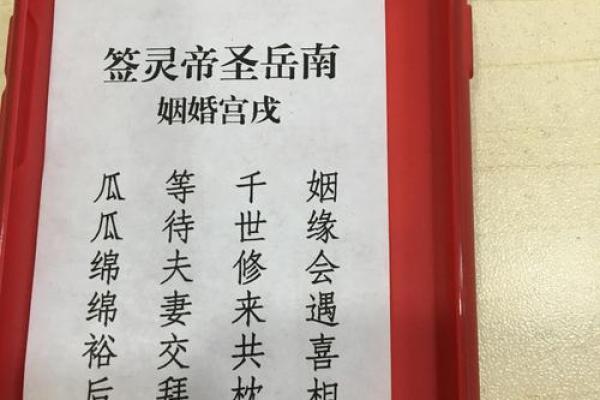 南岳圣帝灵签
戌宫婚姻
姻缘会遇喜相
千世修来共枕
等待夫妻交拜
瓜瓜绵绵裕后